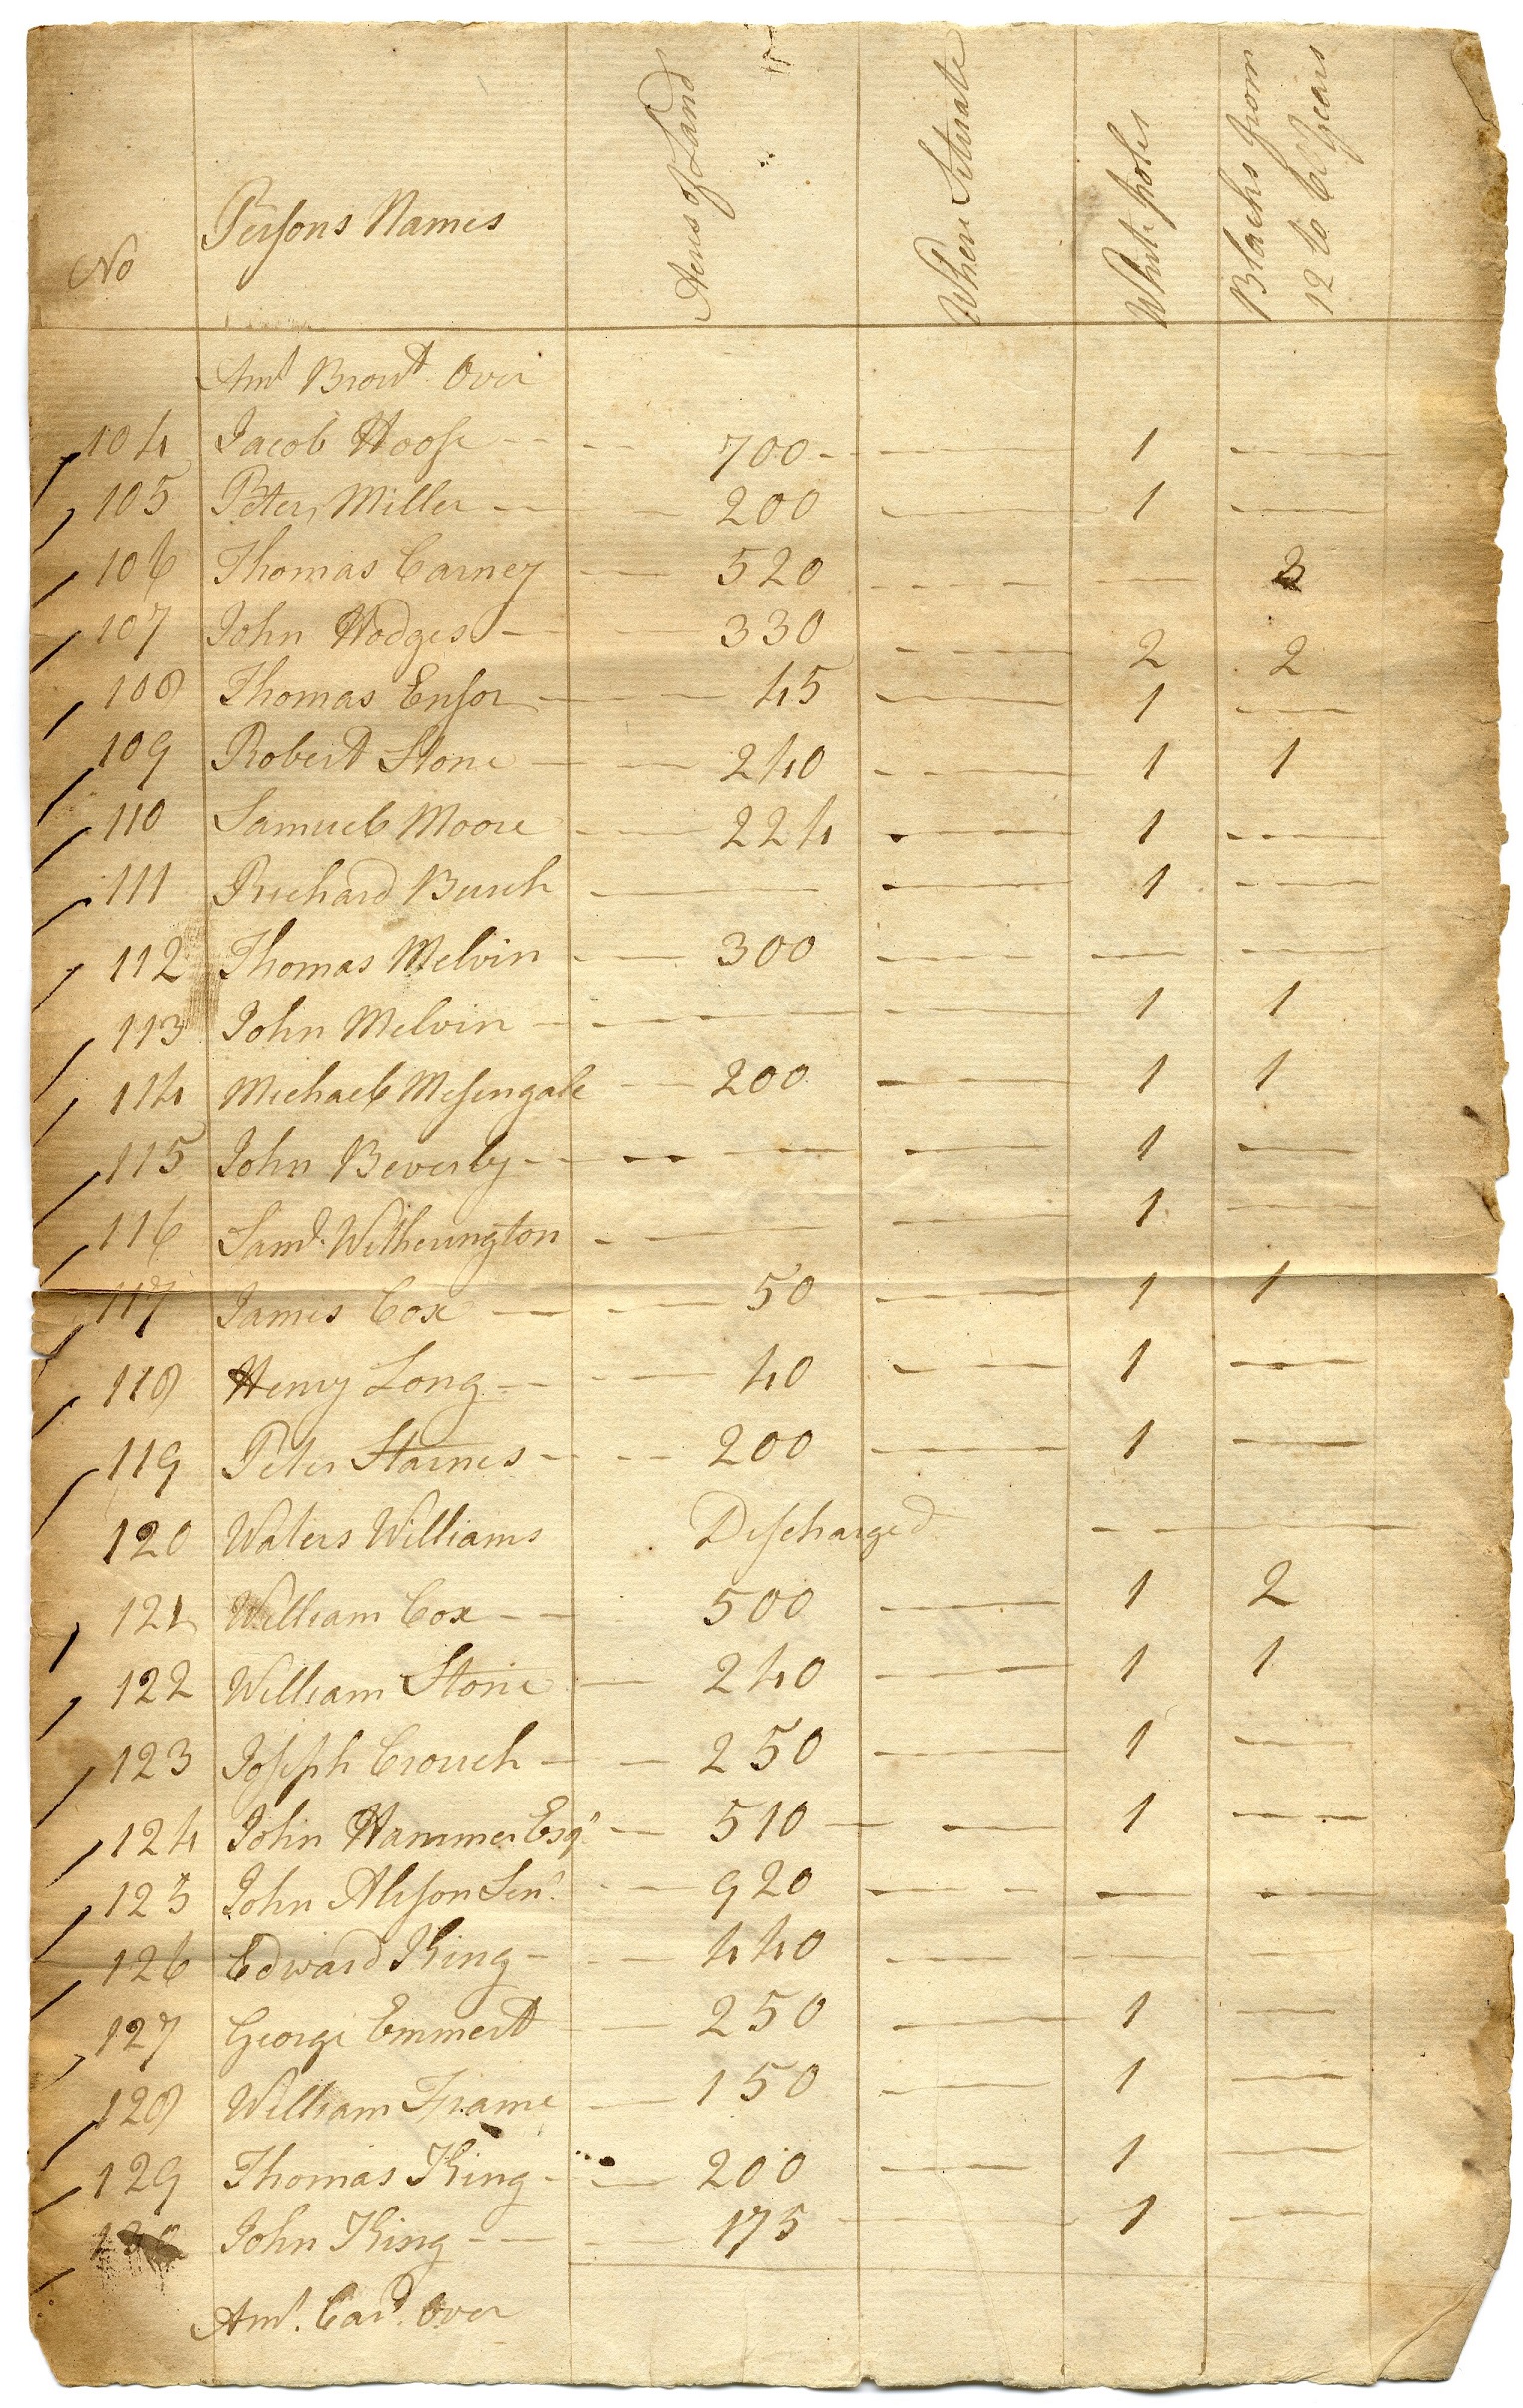 No Persons Names Acres of Land Where Situate White poles Blacks from 12 to 60 Years
Amt Brout Over
104 Jacob Hoose 700 1
105 Peter Miller 200 1
106 Thomas Carney 520
107 John Hodges 330 2 2
108 Thomas Ensor 45 1
109 Robert Stone 240 1 1
110 Samuel Moore 224 1
111 Richard Burch 1
112 Thomas Melvin 300
113 John Melvin 1 1
114 Michael Mesengale 200 1 1
115 John Beverly 1
116 Saml. Witherington 1
117 James Cox 50 1 1
118 Henry Long 40 1
119 Peter Starnes 200 1
120 Waters Williams Discharged
121 William Cox 500 1 2
122 William Stone 240 1 1
123 Joseph Crouch 250 1
124 John Hammer Esqr 510 1
125 John Alison Senr. 920
126 Edward King 440
127 George Emmert 250 1
128 William Frame 150 1
129 Thomas King 200 1
130 John King 175 1
Amt. Card. Over